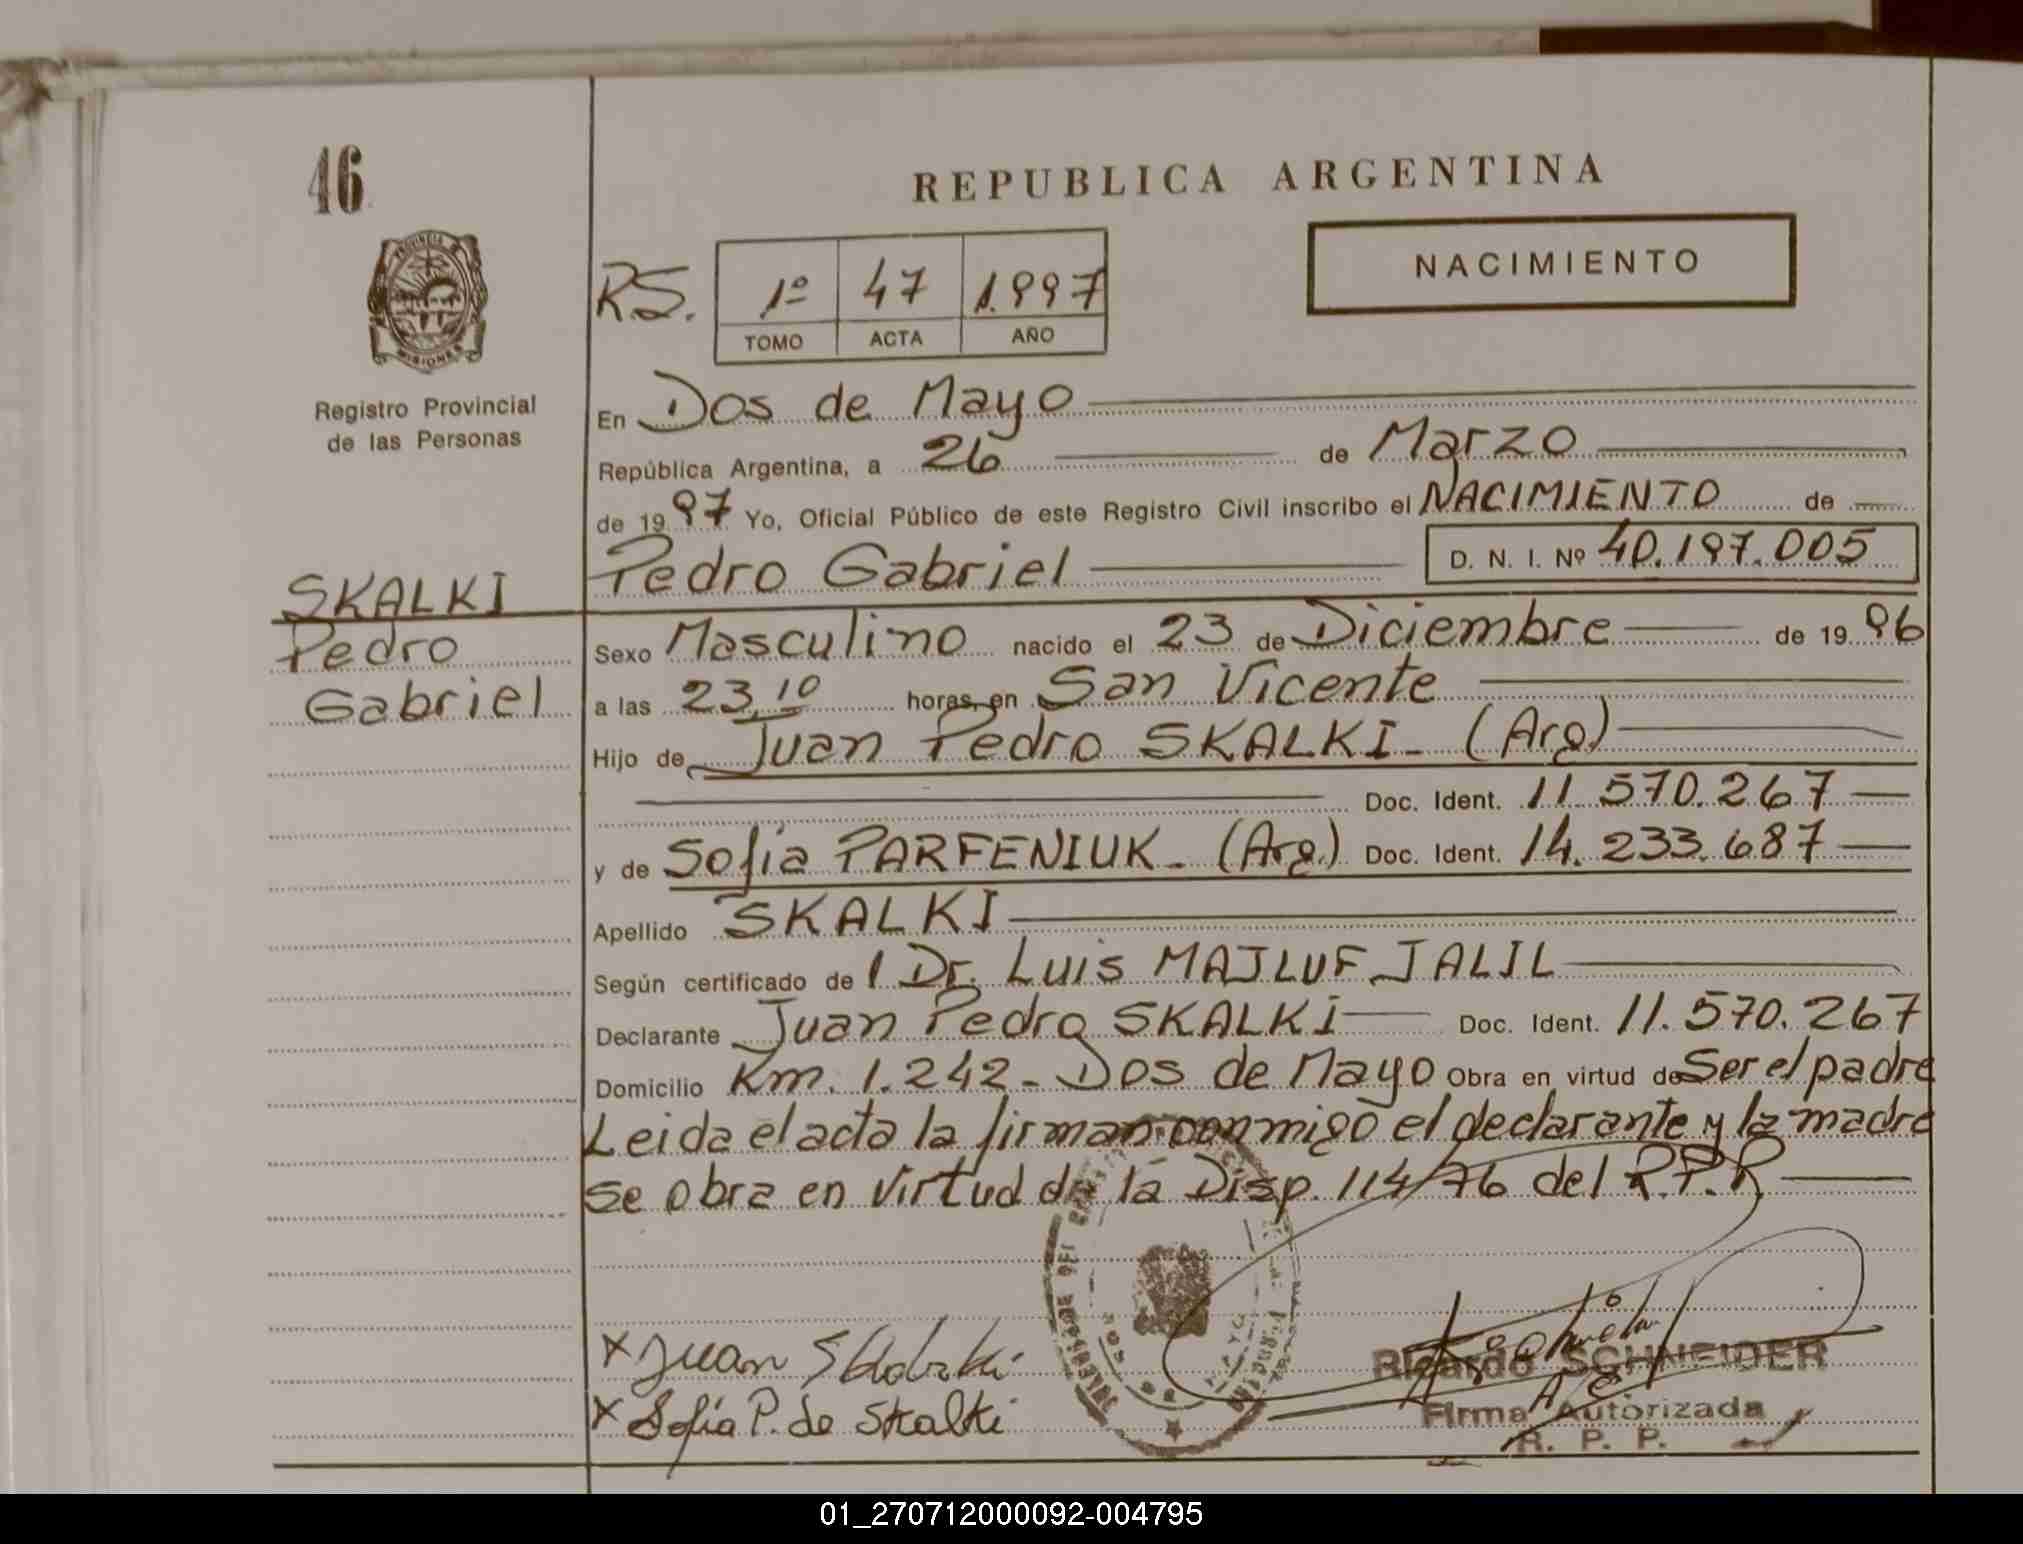 46
REPUBLICA ARGENTINA
NACIMIENTO
RS. 1º 47 1.997
TOMO ACTA AÑO
PROVINCIA DE
MISIONES
Registro Provincial
de las Personas
En Dos de Mayo
República Argentina, a 26 de Marzo
de 1997 Yo, Oficial Público de este Registro Civil inscribo el NACIMIENTO de
Pedro Gabriel D. N. I. Nº 40.197.005
SKALKI
Pedro
Gabriel
Sexo Masculino nacido el 23 de Diciembre de 1996
a las 23,10 horas, en San Vicente
Hijo de Juan Pedro SKALKI - (Arg)
Doc. Ident. 11.570.267
y de Sofia PARFENIUK - (Arg.) Doc. Ident. 14.233.687
Apellido SKALKI
Según certificado de l Dr. Luis MAJLUF JALIL
Declarante Juan Pedro SKALKI Doc. Ident. 11.570.267
Domicilio Km. 1.242 - Dos de Mayo Obra en virtud de Ser el padre
Leida el acta la firman conmigo el declarante y la madre
se obra en virtud de la Disp. 114/76 del R.P.P.
x Juan Skalski
x Sofía P. de Skalki
Ricardo SCHNEIDER
Firma Autorizada
R. P. P.
01_270712000092-004795